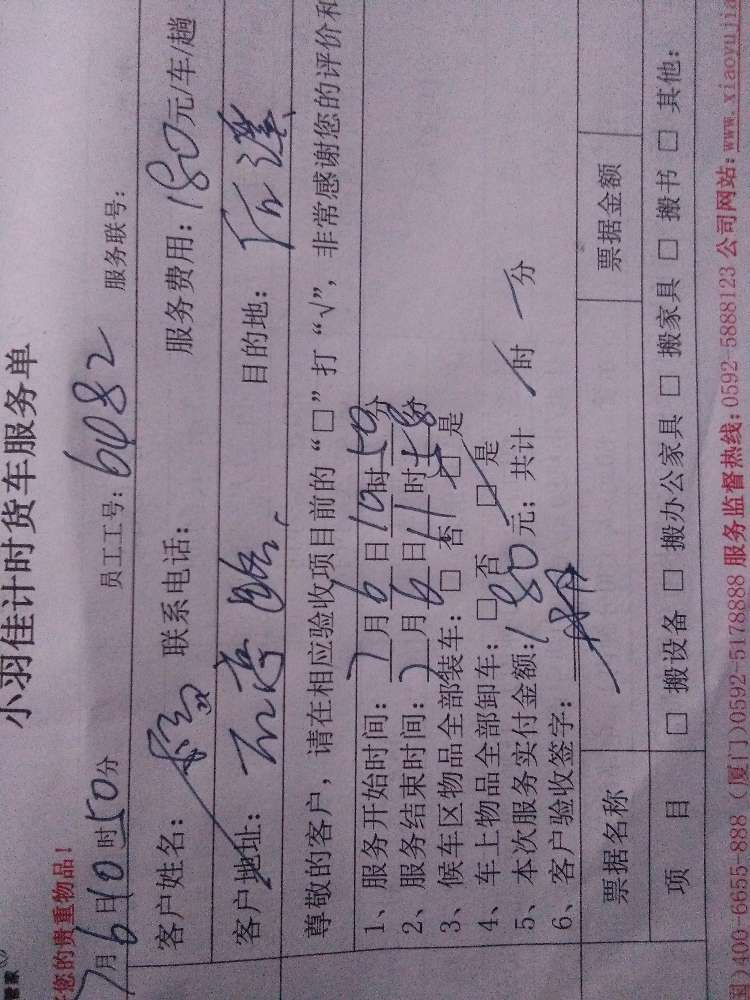 小羽佳计时货车服务单
您的贵重物品!
7月6日10时50分 员工工号: 6482 服务联号:
客户姓名: 联系电话: 服务费用: 180元/车/趟
客户地址: 目的地:
尊敬的客户，请在相应验收项目前的“□”打“√”，非常感谢您的评价和
1、服务开始时间: 7月6日10时50分
2、服务结束时间: 7月6日11时58分
3、候车区物品全部装车: □否 □是
4、车上物品全部卸车: □否 □是
5、本次服务实付金额: 180元; 共计 / 时 / 分
6、客户验收签字:
票据名称 票据金额
项 目 □搬设备 □搬办公家具 □搬家具 □搬书 □其他:
)400-6655-888 (厦门)0592-5178888 服务监督热线: 0592-5888123 公司网站: www.xiaoyujia